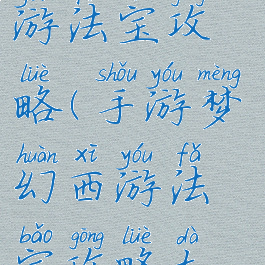 游法宝攻
lüè shǒu yóu mèng
略(手游梦
huàn xī yóu fǎ
幻西游法
bǎo gōng lüè dà
宝攻略大